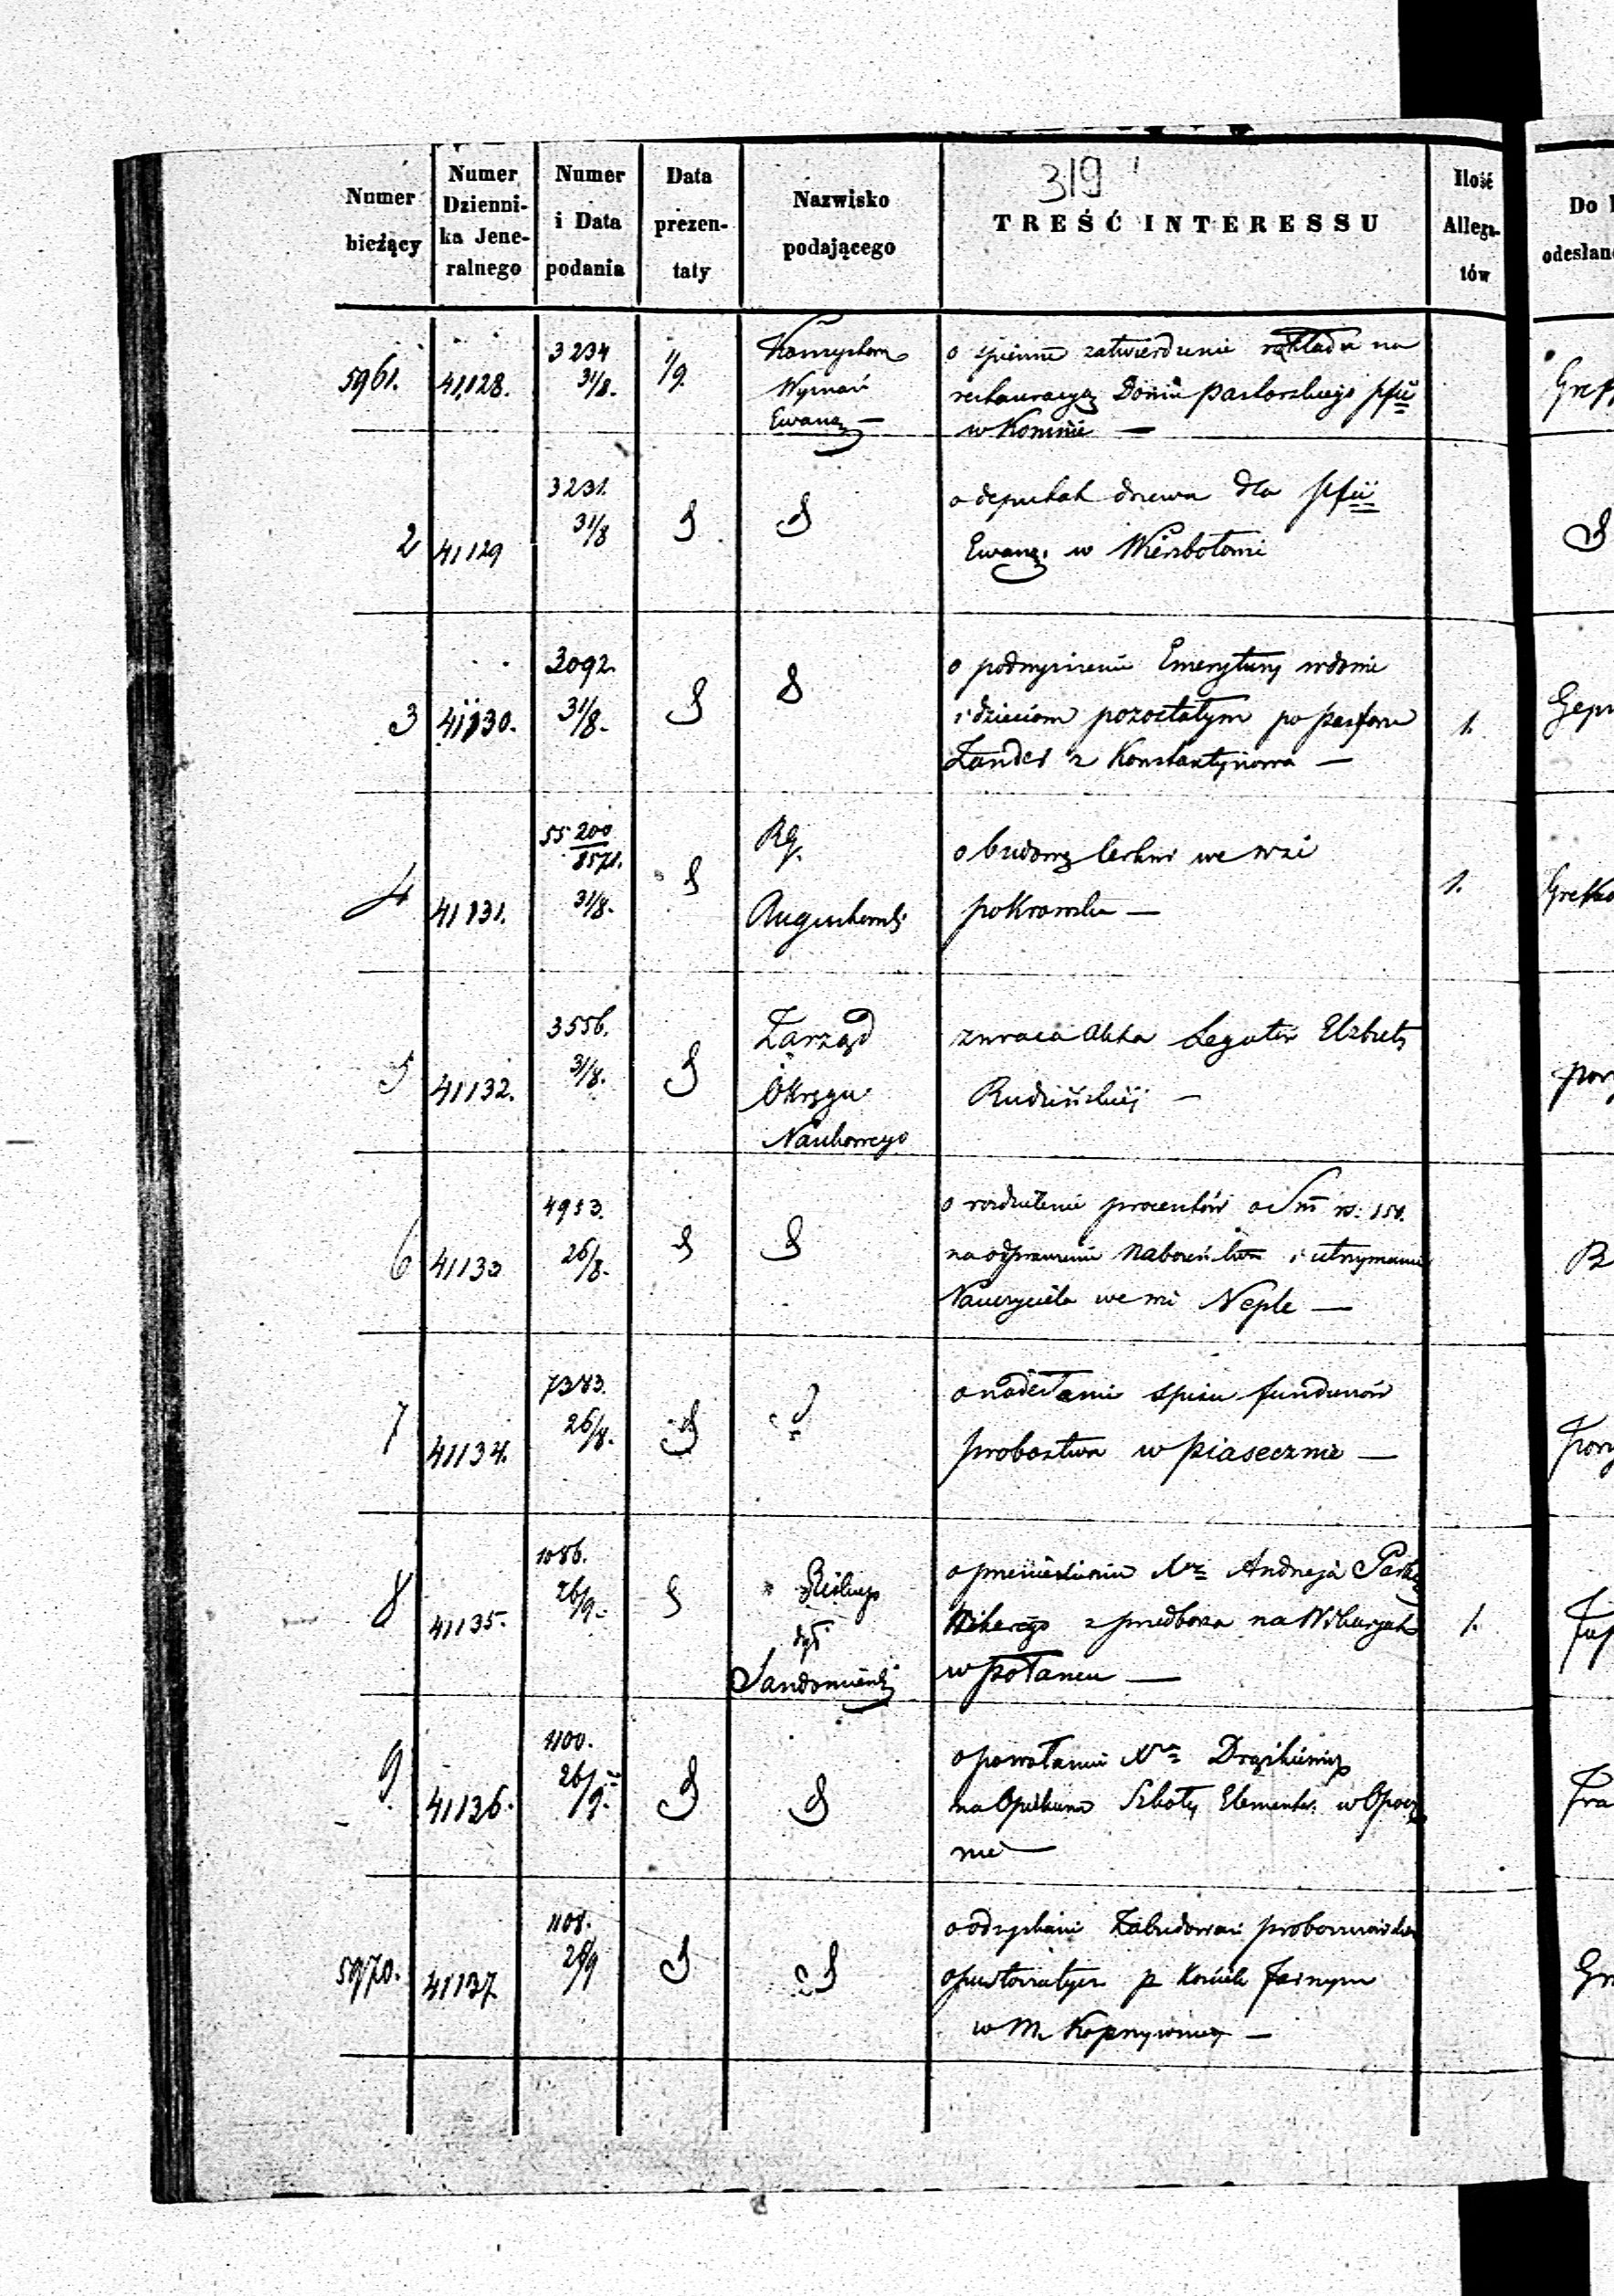 319
Numer bieżący
Numer Dzienni- ka Jene- ralnego
Numer i Data podania
Data prezen- taty
Nazwisko podającego
TREŚĆ INTERESSU
Ilość Allega- tów
Do
odesłan
5961. 41,128. 3234 31/8. 1/9. Konsystorz
Wyznań
Ewang. —
o zatwierdzenie rozkładu na
restauracyą Domu pastorskiego pfii
w Koninie —
2 41129 3231. 31/8
o deputat drzewa dla pfii
Ewang. w Wierzbołowi
3 41130. 3092. 31/8.
o podwyższenie Emerytury wdowie
i dzieciom pozostałym po pastorze
Landes z Konstantynowa — 1.
4 41131. 55200/8571. 31/8. RG.
Augustowski
o budowę cerkwi we wsi
pokrowsku — 1.
5 41132. 3556. 31/8. Zarząd
Okręgu
Naukowego
zwraca akta Legatów Elżbiety
Rudzińskiej —
6 41133 4953. 26/8.
o rozdzielenie procentów od Sm rs. 150.
na odprawienie Nabożeństwa i utrzymanie
Nauczyciela we wsi Neple —
7 41134. 7383. 26/8.
o nadesłanie spisu funduszów
probostwa w piasecznie —
8 41135. 1086. 26/9. Biskup
Sandomierski
o przeniesienie Xdza Andrzeja
Wikarego z przedborza na Wikaryat
w połańcu — 1.
9. 41136. 1100. 26/9.
o powołanie Xdza
na Opiekuna Szkoły Elementar. w Opocz
nie —
5970. 41137. 1108. 26/9
o odzyskanie Zabudowań
p Kościele farnym
w M. Koprzywnicy —